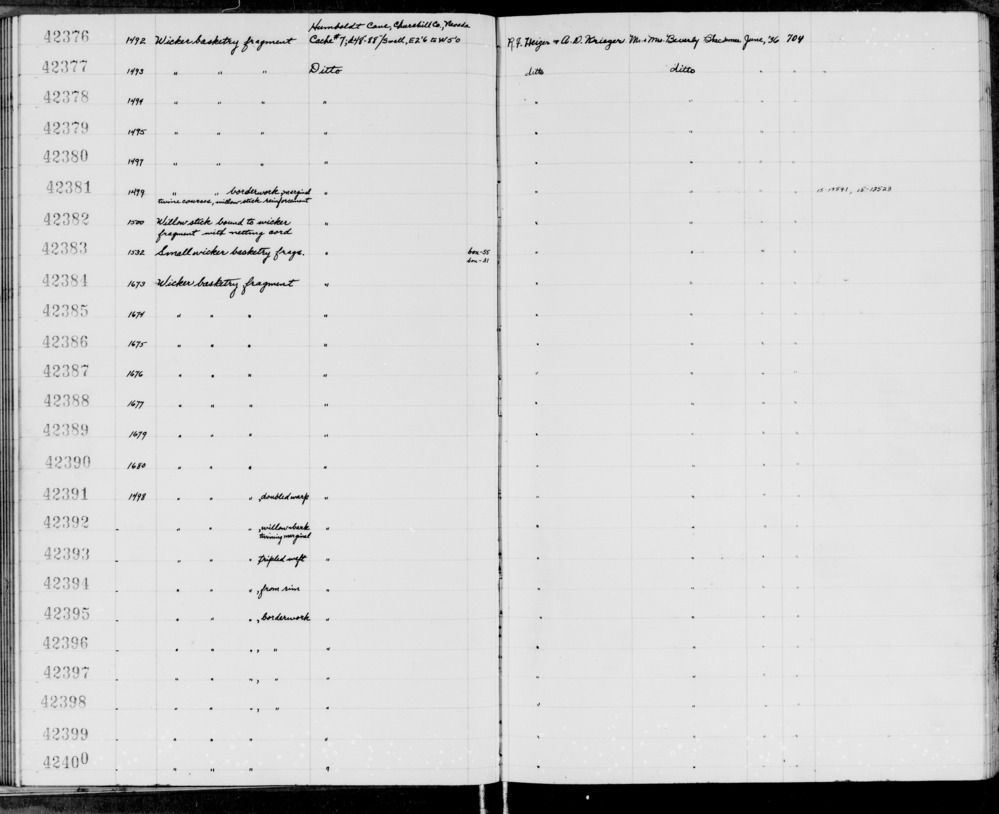 Humboldt Cave, Churchill Co., Nevada
42376 1492 Wicker basketry fragment Cache #7; d48-88 / S wall, E2'6 to W5'0 R.F. Heizer & A.D. Krieger Mr & Mrs Beverly June, '36 704
42377 1493 " " " Ditto ditto ditto " "
42378 1494 " " " " " " " "
42379 1495 " " " " " " " "
42380 1497 " " " " " " " "
42381 1499 " " borderwork, marginal " " " " "
twine courses, willow stick reinforcement
42382 1500 Willow stick bound to wicker " " " " "
fragment with netting cord
42383 1532 Small wicker basketry frags. " box-55 " " " "
box-31
42384 1673 Wicker basketry fragment " " " " "
42385 1674 " " " " " " " "
42386 1675 " " " " " " " "
42387 1676 " " " " " " " "
42388 1677 " " " " " " " "
42389 1679 " " " " " " " "
42390 1680 " " " " " " " "
42391 1498 " " ", doubled warp " " " " "
42392 " " " ", willow bark " " " " "
twining marginal
42393 " " " " tripled weft " " " " "
42394 " " " ", from rim " " " " "
42395 " " " ", borderwork " " " " "
42396 " " " ", " " " " " "
42397 " " " ", " " " " " "
42398 " " " ", " " " " " "
42399 " " " " " " " " "
42400 " " " " " " " " "